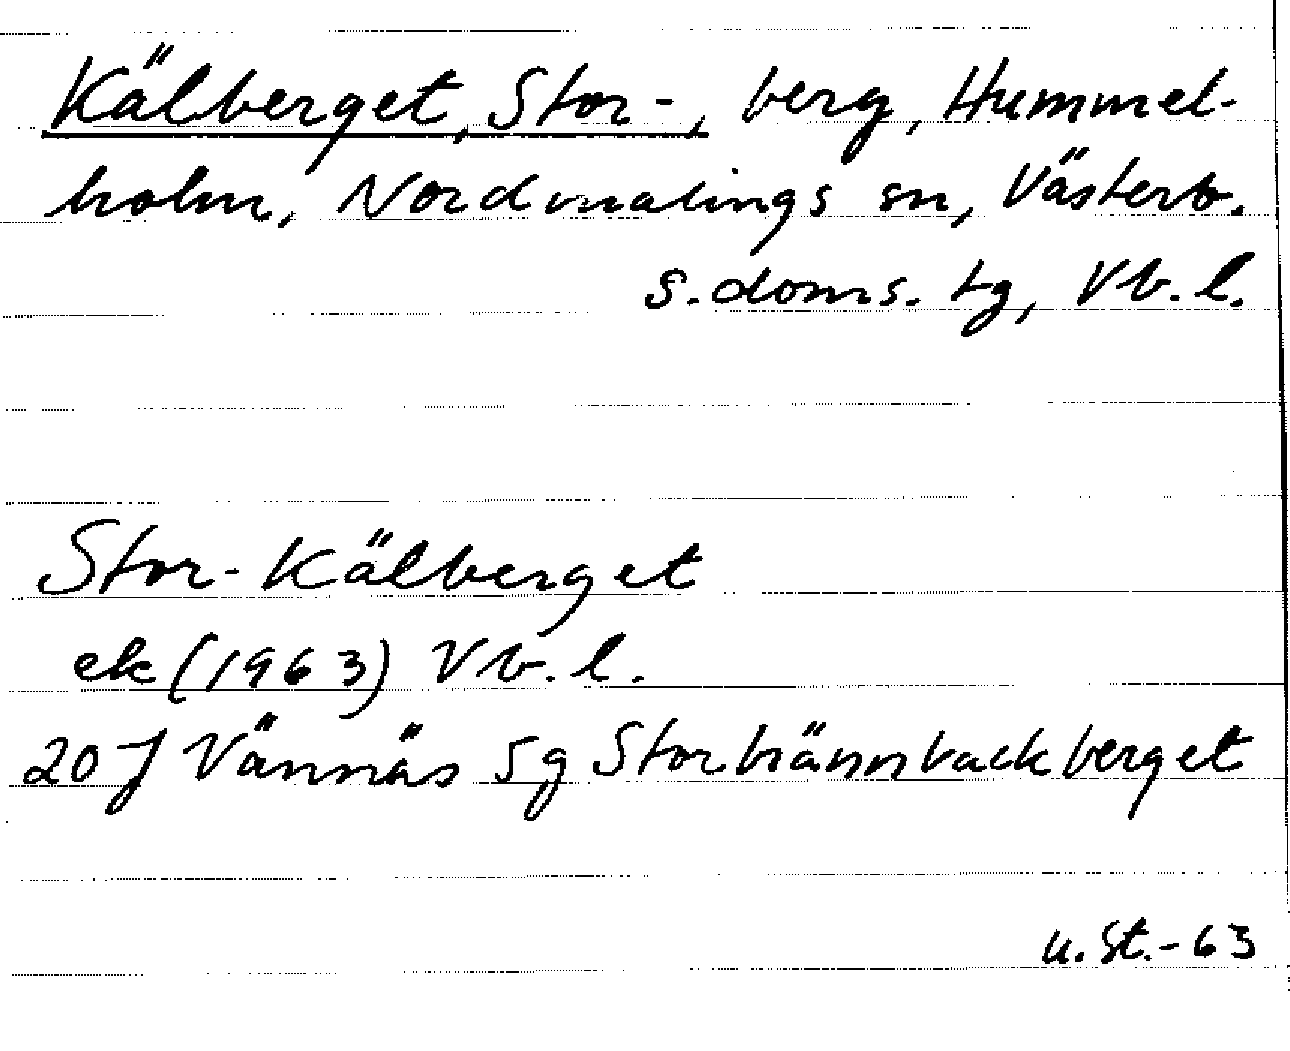 Kälberget, Stor-, berg, Hummel-
holm, Nordmalings sn, Västerb.
s. doms. tg, Vb. l.
Stor-Kälberget
ek (1963) Vb. l.
20 J Vännäs 5g Storbrännbackberget
u. St. - 63